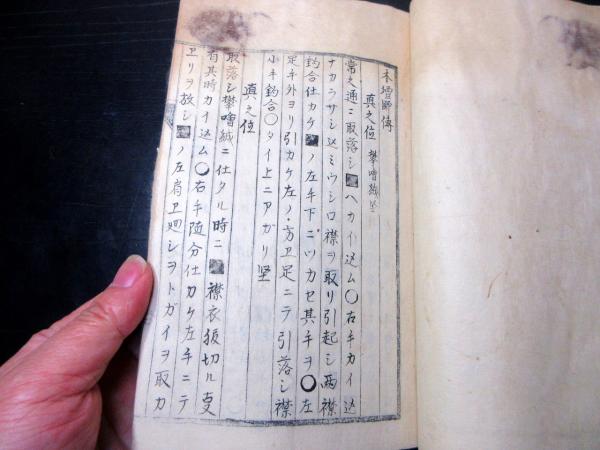 木壇師傳
真之位 攀噲絾坐
常之通ニ取落シ■ヘカイ込ム〇右手カイ込
ナカラサシ込ミウシロ襟ヲ取リ引起シ両襟
釣合仕カケ■ノ左手下ニツカセ其手ヲ〇左
足ヲ外ヨリ引カケ左ノ方ヱ足ニテ引落シ襟
小手釣合〇タイ上ニアガリ堅
真之位
取落シ攀噲絾ニ仕タル時ニ■襟衣振切ル
有其時カイ込ム〇右手随分仕カケ左手ニテ
ヱリヲ放シ■ノ左肩ヱ廻シヲトガイヲ取カ